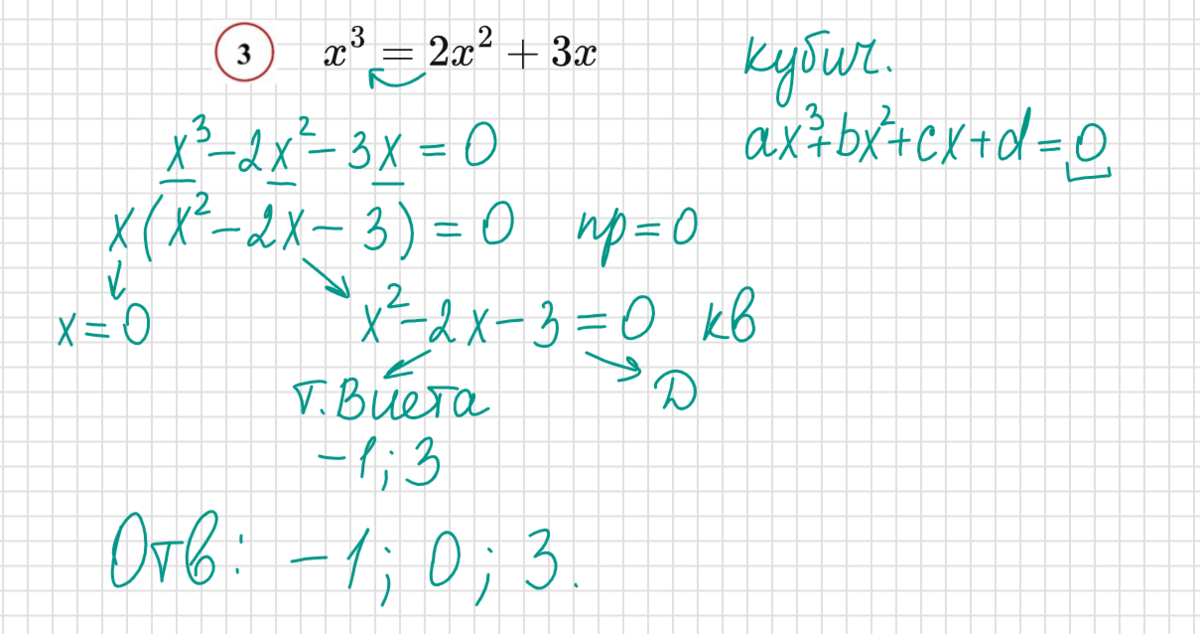 3 x³ = 2x² + 3x
кубич.
x³ - 2x² - 3x = 0
ax³ + bx² + cx + d = 0
x(x² - 2x - 3) = 0 пр = 0
x = 0
x² - 2x - 3 = 0 кв
т. Виета
D
-1; 3
Отв: -1; 0; 3.